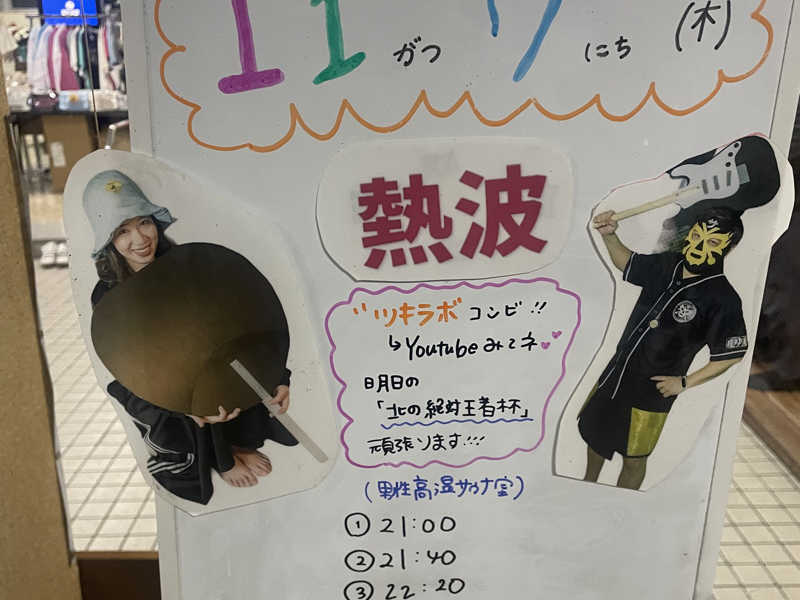 11がつ7にち(木)
熱波
"ツキラボコンビ!!
↳Youtubeみてネ
明日の
「北の絶対王者杯」
頑張ります!!!
(男性高温サウナ室)
① 21:00
② 21:40
③ 22:20